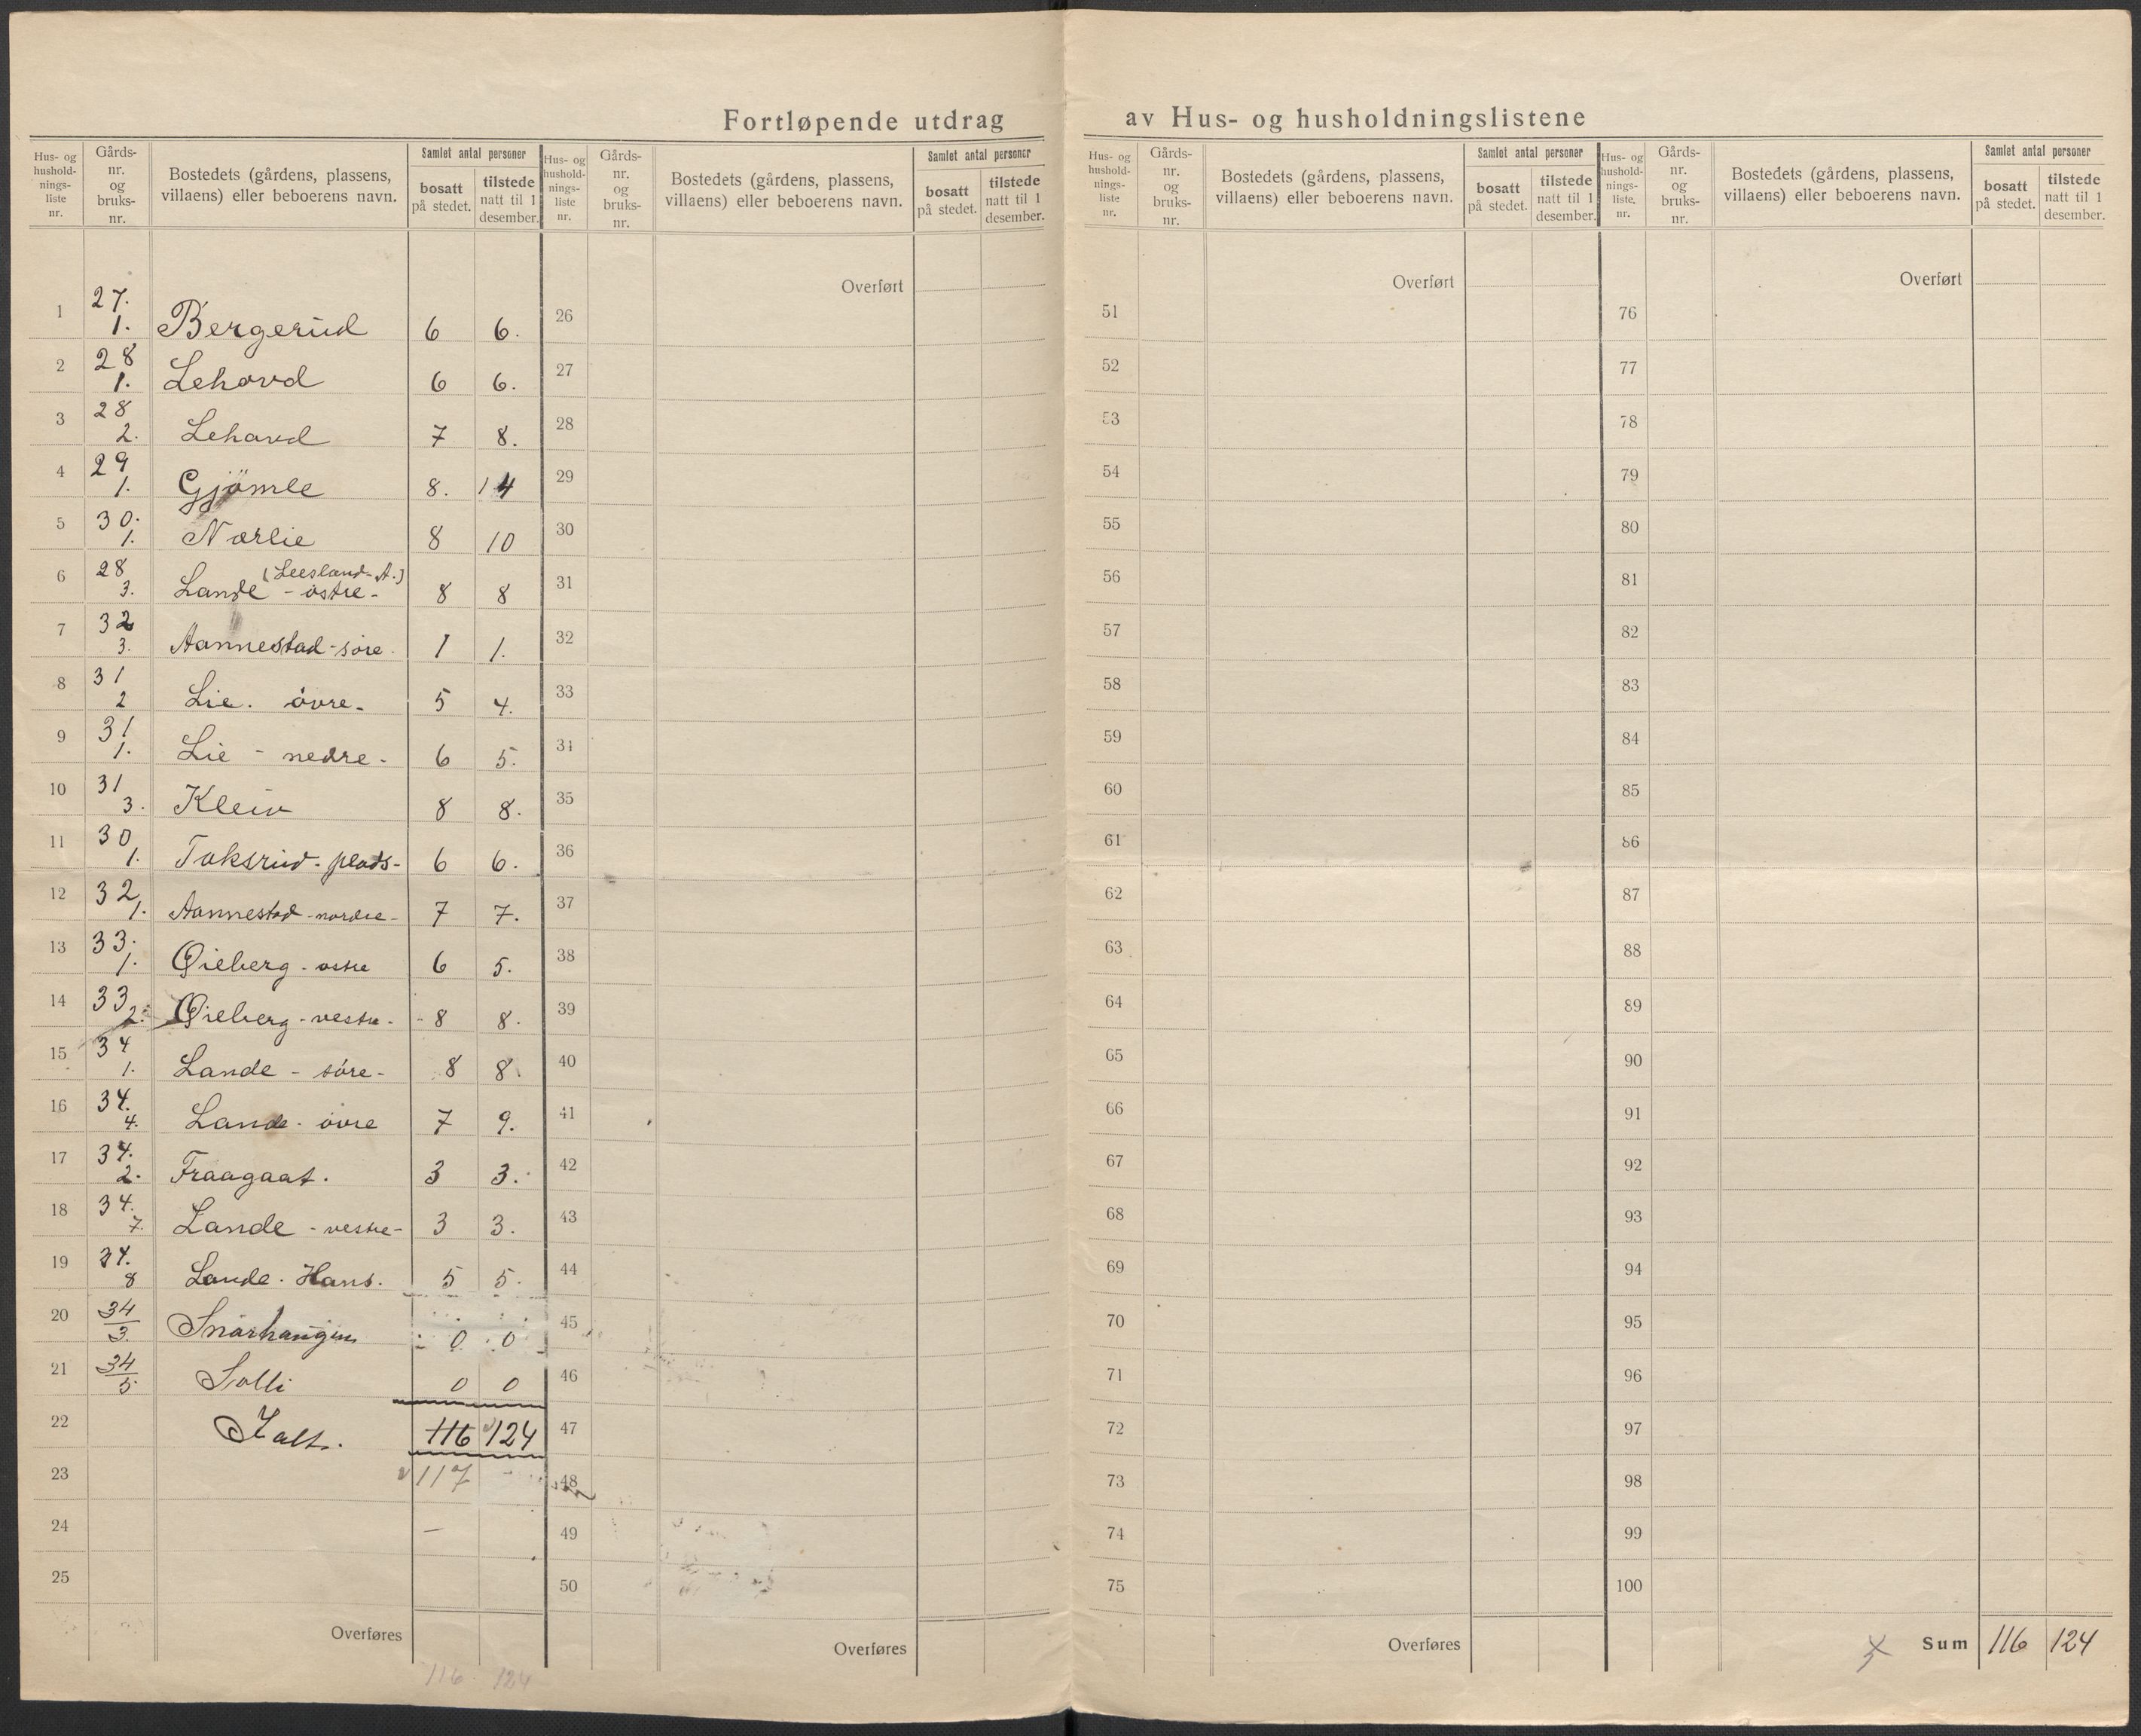 Fortløpende utdrag av Hus- og husholdningslistene
Hus- og hushold- nings- liste nr. | Gårds- nr. og bruks- nr. | Bostedets (gårdens, plassens, villaens) eller beboerens navn. | Samlet antal personer | bosatt på stedet. | tilstede natt til 1 desember.
1 27. 1. Bergerud 6 6.
2 28 1. Lehovd 6 6.
3 28 2. Lehovd 7 8.
4 29 1. Gjömle 8. 14
5 30. 1. Norlie 8 10
6 28 3. Lande (Leesland-A.) - östre - 8 8
7 32 3. Aannestad - söre - 1 1.
8 31 2 Lie. övre - 5 4.
9 31 1. Lie - nedre - 6 5.
10 31 3. Kleiv 8 8.
11 30 1. Toksrud - plads - 6 6.
12 32 1. Aannestad - nordre - 7 7.
13 33. 1. Øieberg - østre 6 5.
14 33 2. Øieberg - vestre - 8 8.
15 34 1. Lande - söre - 8 8
16 34. 4. Lande - övre 7 9.
17 34. 2. Fraagaat. 3 3.
18 34. 7. Lande - vestre - 3 3.
19 34. 8 Lande - Hans. 5 5.
20 34/3. Snarhaugen 0 0
21 34/5 Solli 0 0
22 Ialt. 116 124
23 117
24 –
25
Overføres
116 124
Hus- og hushold- nings- liste nr. | Gårds- nr. og bruks- nr. | Bostedets (gårdens, plassens, villaens) eller beboerens navn. | Samlet antal personer | bosatt på stedet. | tilstede natt til 1 desember.
Overført
26
27
28
29
30
31
32
33
34
35
36
37
38
39
40
41
42
43
44
45
46
47
48
49
50
Overføres
Hus- og hushold- nings- liste nr. | Gårds- nr. og bruks- nr. | Bostedets (gårdens, plassens, villaens) eller beboerens navn. | Samlet antal personer | bosatt på stedet. | tilstede natt til 1 desember.
Overført
51
52
53
54
55
56
57
58
59
60
61
62
63
64
65
66
67
68
69
70
71
72
73
74
75
Overføres
Hus- og hushold- nings- liste. nr. | Gårds- nr. og bruks- nr. | Bostedets (gårdens, plassens, villaens) eller beboerens navn. | Samlet antal personer | bosatt på stedet. | tilstede natt til 1 desember.
Overført
76
77
78
79
80
81
82
83
84
85
86
87
88
89
90
91
92
93
94
95
96
97
98
99
100
Sum 116 124